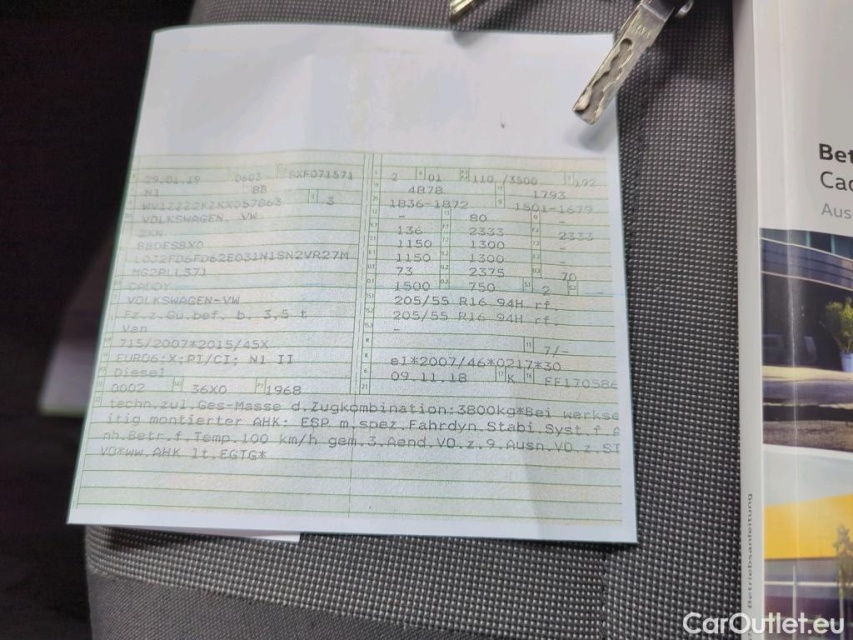 29.01.19 0603
N1 BB
3
VOLKSWAGEN, VW
2KN
CADDY
VOLKSWAGEN-VW
Fz.z.Gü.bef. b. 3,5 t
Van
715/2007*2015/45X
EURO6;X;PI/CI; N1 II
Diesel
0002 36X0 1968
2 01 110 /3500
4878 1793
1836-1872 1501-1679
- 80 -
136 2333 2333
1150 1300 -
1150 1300 -
73 2375 70
1500 750 2 -
205/55 R16 94H rf.
205/55 R16 94H rf.
-
7/-
e1*2007/46*0217*30
09.11.18 K FF170586
techn.zul.Ges-Masse d.Zugkombination:3800kg*Bei werkse
itig montierter AHK: ESP m.spez.Fahrdyn.Stabi.Syst f A
nh.Betr.f.Temp.100 km/h gem.3.Aend.VO.z.9.Ausn.VO.z.St
VO*ww.AHK lt.EGTG*
Bet
Cad
Aus
Betriebsanleitung
CarOutlet.eu